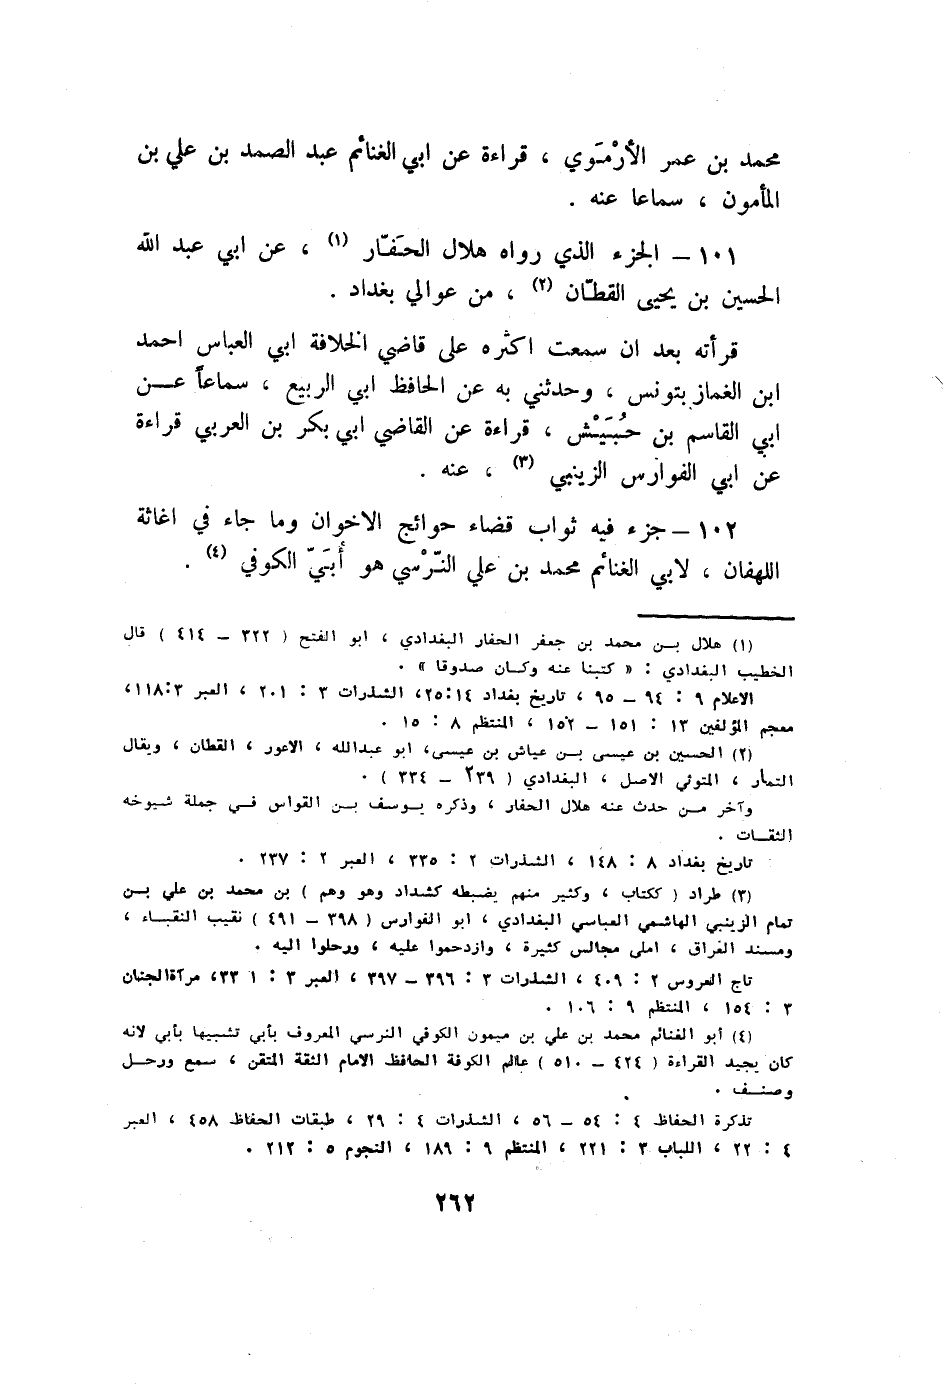 محمد بن عمر الأرْمَوي ، قراءة عن ابي الغنائم عبد الصمد بن علي بن
المأمون ، سماعا عنه .
١٠١ – الجزء الذي رواه هلال الحَفّار (١) ، عن ابي عبد الله
الحسين بن يحيى القطّان (٢) ، من عوالي بغداد .
قرأته بعد ان سمعت اكثره على قاضي الخلافة ابي العباس احمد
ابن الغماز بتونس ، وحدثني به عن الحافظ ابي الربيع ، سماعاً عن
ابي القاسم بن حُبَيْش ، قراءة عن القاضي ابي بكر بن العربي قراءة
عن ابي الفوارس الزينبي (٣) ، عنه .
١٠٢ – جزء فيه ثواب قضاء حوائج الاخوان وما جاء في اغاثة
اللهفان ، لابي الغنائم محمد بن علي النّرْسي هو أُبَيّ الكوفي (٤) .
(١) هلال بن محمد بن جعفر الحفار البغدادي ، ابو الفتح ( ٣٢٢ – ٤١٤ ) قال
الخطيب البغدادي : « كتبنا عنه وكان صدوقا » .
الاعلام ٩ : ٩٤ – ٩٥ ، تاريخ بغداد ١٤:٢٥، الشذرات ٣ : ٢٠١ ، العبر ٣:١١٨،
معجم المؤلفين ١٣ : ١٥١ – ١٥٢ ، المنتظم ٨ : ١٥ .
(٢) الحسين بن عيسى بن عياش بن عيسى، ابو عبدالله ، الاعور ، القطان ، ويقال
التمار ، المتوثي الاصل ، البغدادي ( ٢٣٩ – ٣٣٤ ) .
وآخر من حدث عنه هلال الحفار ، وذكره يوسف بن القواس في جملة شيوخه
الثقات .
تاريخ بغداد ٨ : ١٤٨ ، الشذرات ٢ : ٣٣٥ ، العبر ٢ : ٢٣٧ .
(٣) طراد ( ككتاب ، وكثير منهم يضبطه كشداد وهو وهم ) بن محمد بن علي بن
تمام الزينبي الهاشمي العباسي البغدادي ، ابو الفوارس ( ٣٩٨ – ٤٩١ ) نقيب النقباء ،
ومسند العراق ، املى مجالس كثيرة ، وازدحموا عليه ، ورحلوا اليه .
تاج العروس ٢ : ٤٠٩ ، الشذرات ٣ : ٣٩٦ – ٣٩٧ ، العبر ٣ : ٣٣١، مرآةالجنان
٣ : ١٥٤ ، المنتظم ٩ : ١٠٦ .
(٤) أبو الغنائم محمد بن علي بن ميمون الكوفي النرسي المعروف بأبي تشبيها بأبي لانه
كان يجيد القراءة ( ٤٢٤ – ٥١٠ ) عالم الكوفة الحافظ الامام الثقة المتقن ، سمع ورحل
وصنف .
تذكرة الحفاظ ٤ : ٥٤ – ٥٦ ، الشذرات ٤ : ٢٩ ، طبقات الحفاظ ٤٥٨ ، العبر
٤ : ٢٢ ، اللباب ٣ : ٢٢١ ، المنتظم ٩ : ١٨٩ ، النجوم ٥ : ٢١٢ .
٢٦٢